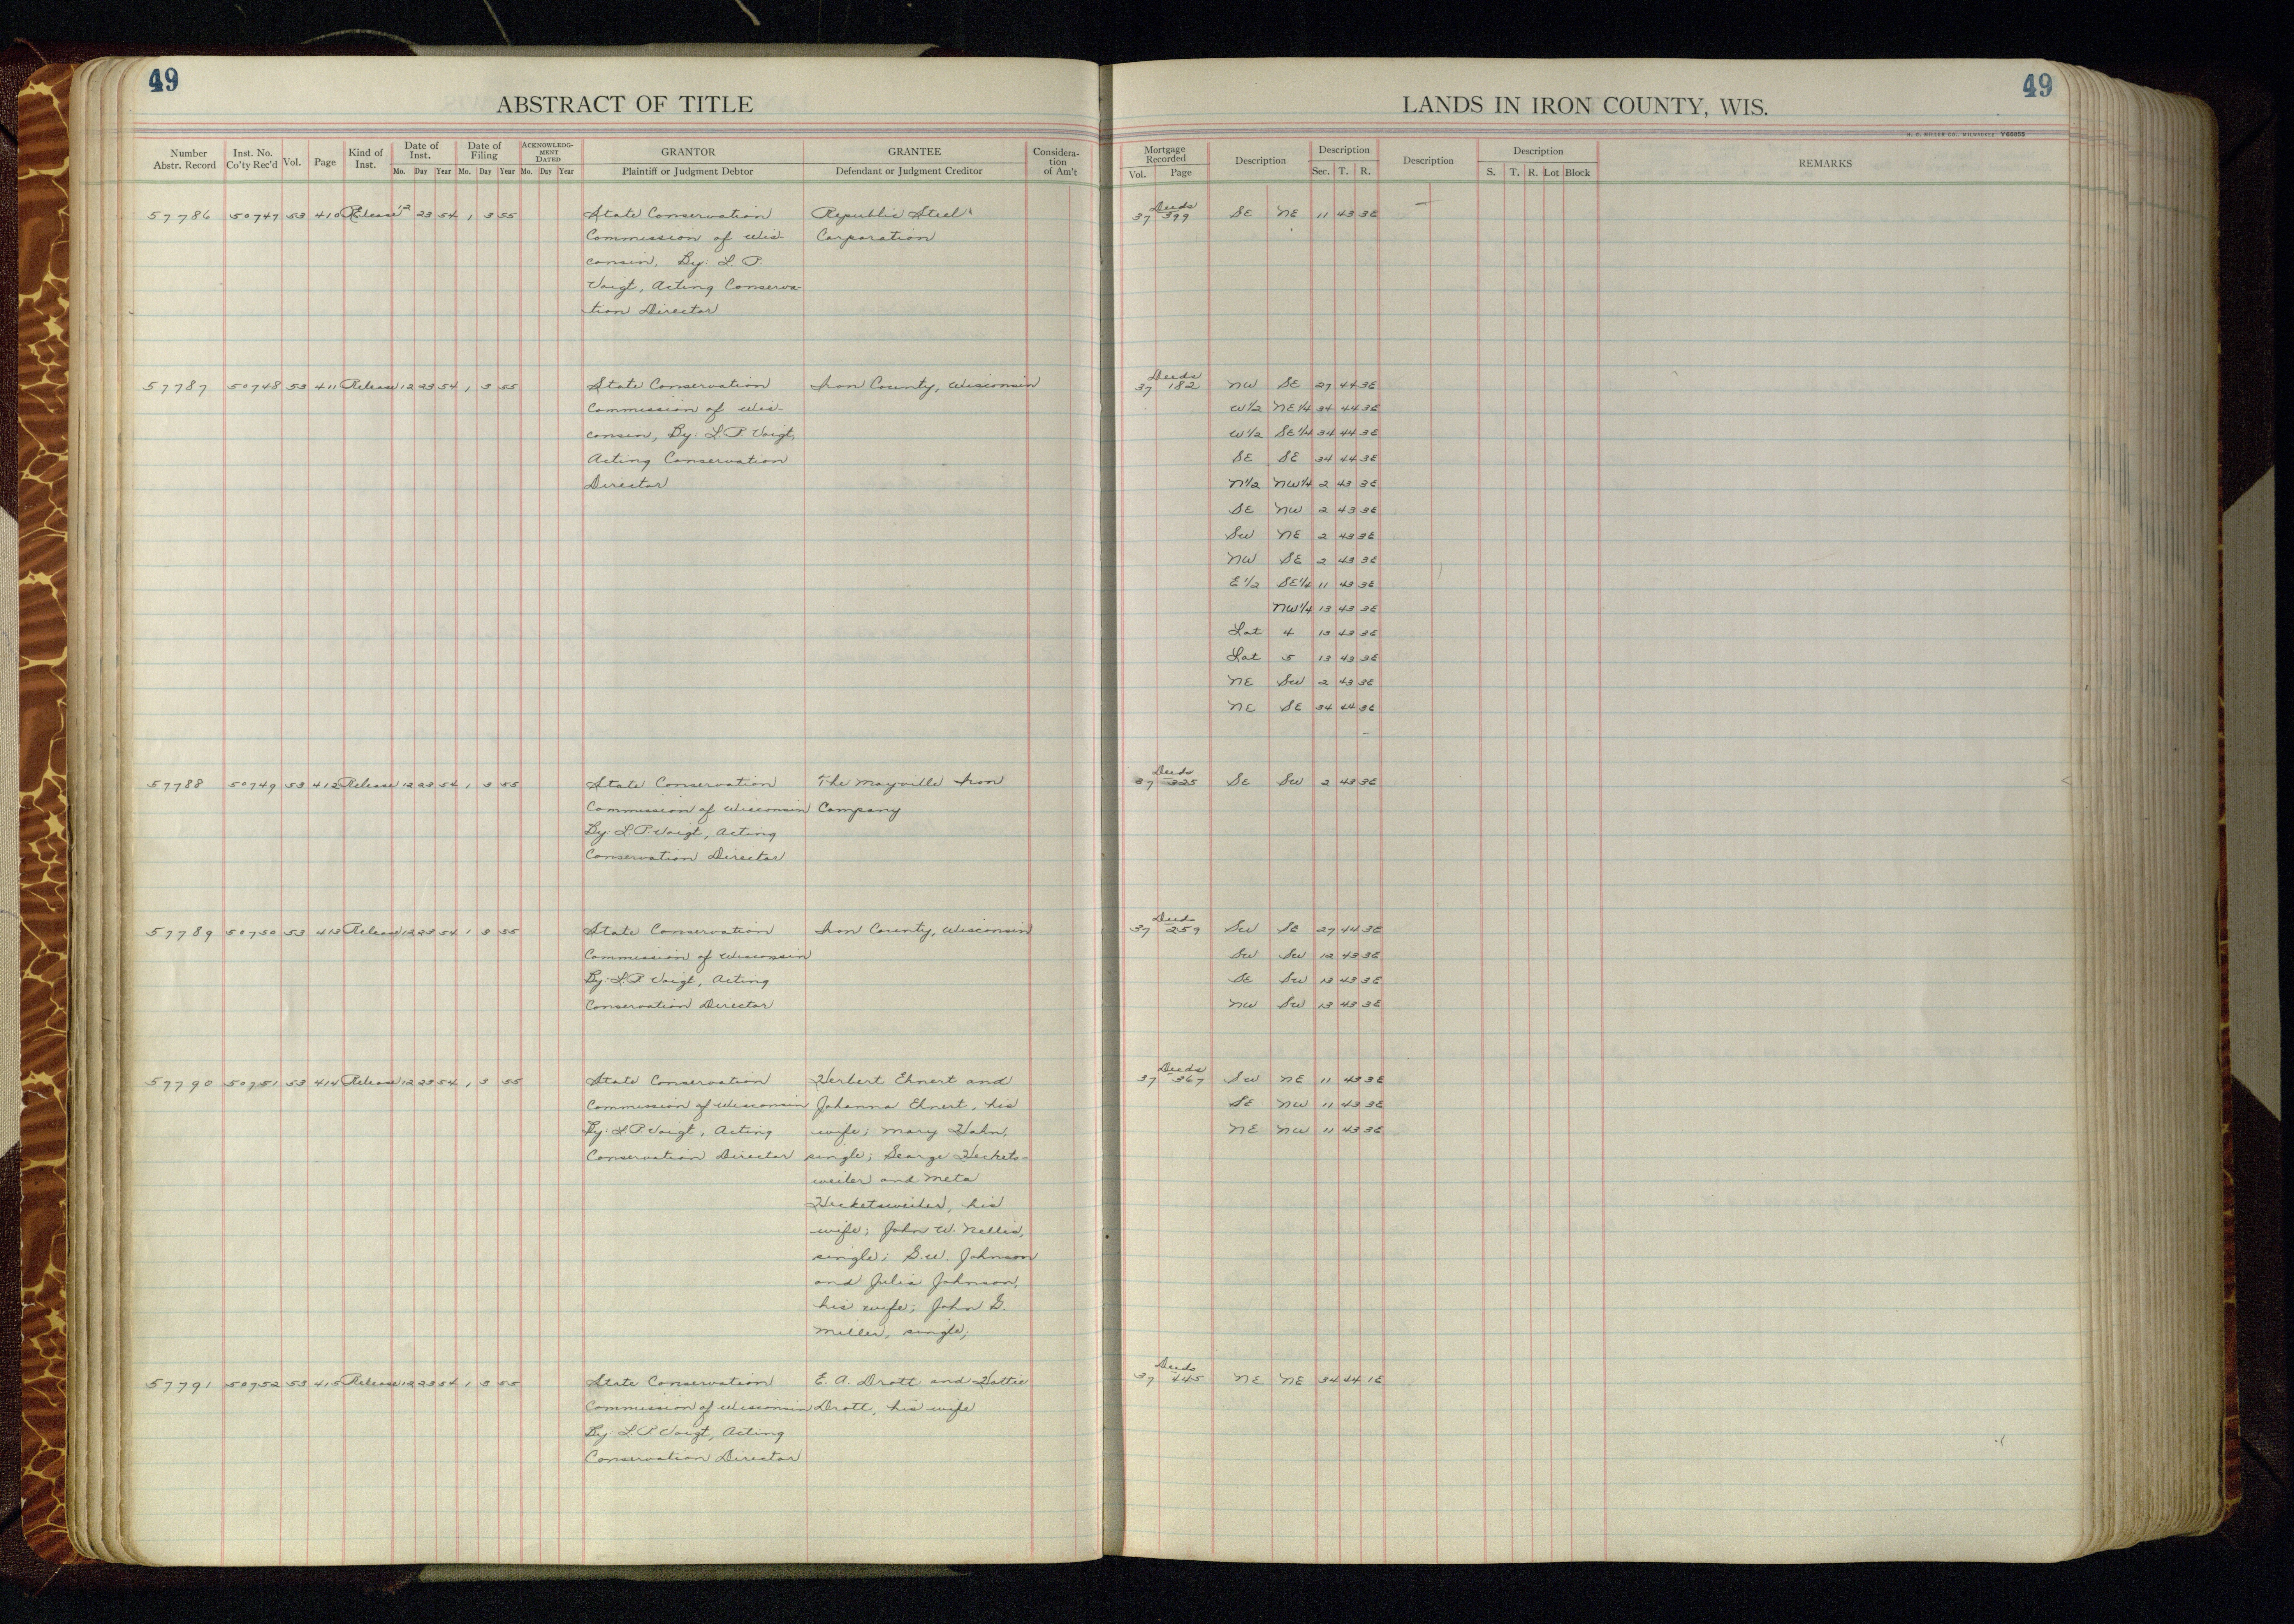 49
ABSTRACT OF TITLE
Number Abstr. Record Inst. No. Co'ty Rec'd Vol. Page Kind of Inst. Date of Inst. Mo. Day Year Date of Filing Mo. Day Year ACKNOWLEDG-MENT DATED Mo. Day Year GRANTOR Plaintiff or Judgment Debtor GRANTEE Defendant or Judgment Creditor Considera-tion of Am't
57786 50747 53 410 Release 12 23 54 1 3 55 State Conservation Republic Steel
Commission of Wis- Corporation
consin, By: L. P.
Voigt, Acting Conserva-
tion Director
57787 50748 53 411 Release 12 23 54 1 3 55 State Conservation Iron County, Wisconsin
Commission of Wis-
consin, By: L.P. Voigt,
Acting Conservation
Director
57788 50749 53 412 Release 12 23 54 1 3 55 State Conservation The Mayville Iron
Commission of Wisconsin Company
By: L.P. Voigt, Acting
Conservation Director
57789 50750 53 413 Release 12 23 54 1 3 55 State Conservation Iron County, Wisconsin
Commission of Wisconsin
By: L.P. Voigt, Acting
Conservation Director
57790 50751 53 414 Release 12 23 54 1 3 55 State Conservation Herbert Ehnert and
Commission of Wisconsin Johanna Ehnert, his
By: L.P. Voigt, Acting wife; Mary Hahn,
Conservation Director single; George Heckets-
weiler and Meta
Hecketsweiler, his
wife; John W. Nellis,
single; G.W. Johnson
and Julia Johnson,
his wife; John G.
Miller, single;
57791 50752 53 415 Release 12 23 54 1 3 55 State Conservation E. A. Drott and Hattie
Commission of Wisconsin Drott, his wife
By: L.P. Voigt, Acting
Conservation Director
49
LANDS IN IRON COUNTY, WIS.
H. C. MILLER CO., MILWAUKEE Y66039
Mortgage Recorded Vol. Page Description Description Sec. T. R. Description Description S. T. R. Lot Block REMARKS
Deeds
37 399 SE NE 11 43 3E
Deeds
37 182 NW SE 27 44 3E
W1/2 NE1/4 34 44 3E
W1/2 SE1/4 34 44 3E
SE SE 34 44 3E
N1/2 NW1/4 2 43 3E
SE NW 2 43 3E
SW NE 2 43 3E
NW SE 2 43 3E
E1/2 SE1/4 11 43 3E
NW1/4 13 43 3E
Lot 4 13 43 3E
Lot 5 13 43 3E
NE SW 2 43 3E
NE SE 34 44 3E
Deeds
37 325 SE SW 2 43 3E
Deeds
37 259 SW SE 27 44 3E
SW SW 12 43 3E
SE SW 13 43 3E
NW SW 13 43 3E
Deeds
37 367 SW NE 11 43 3E
SE NW 11 43 3E
NE NW 11 43 3E
Deeds
37 445 NE NE 34 44 1E